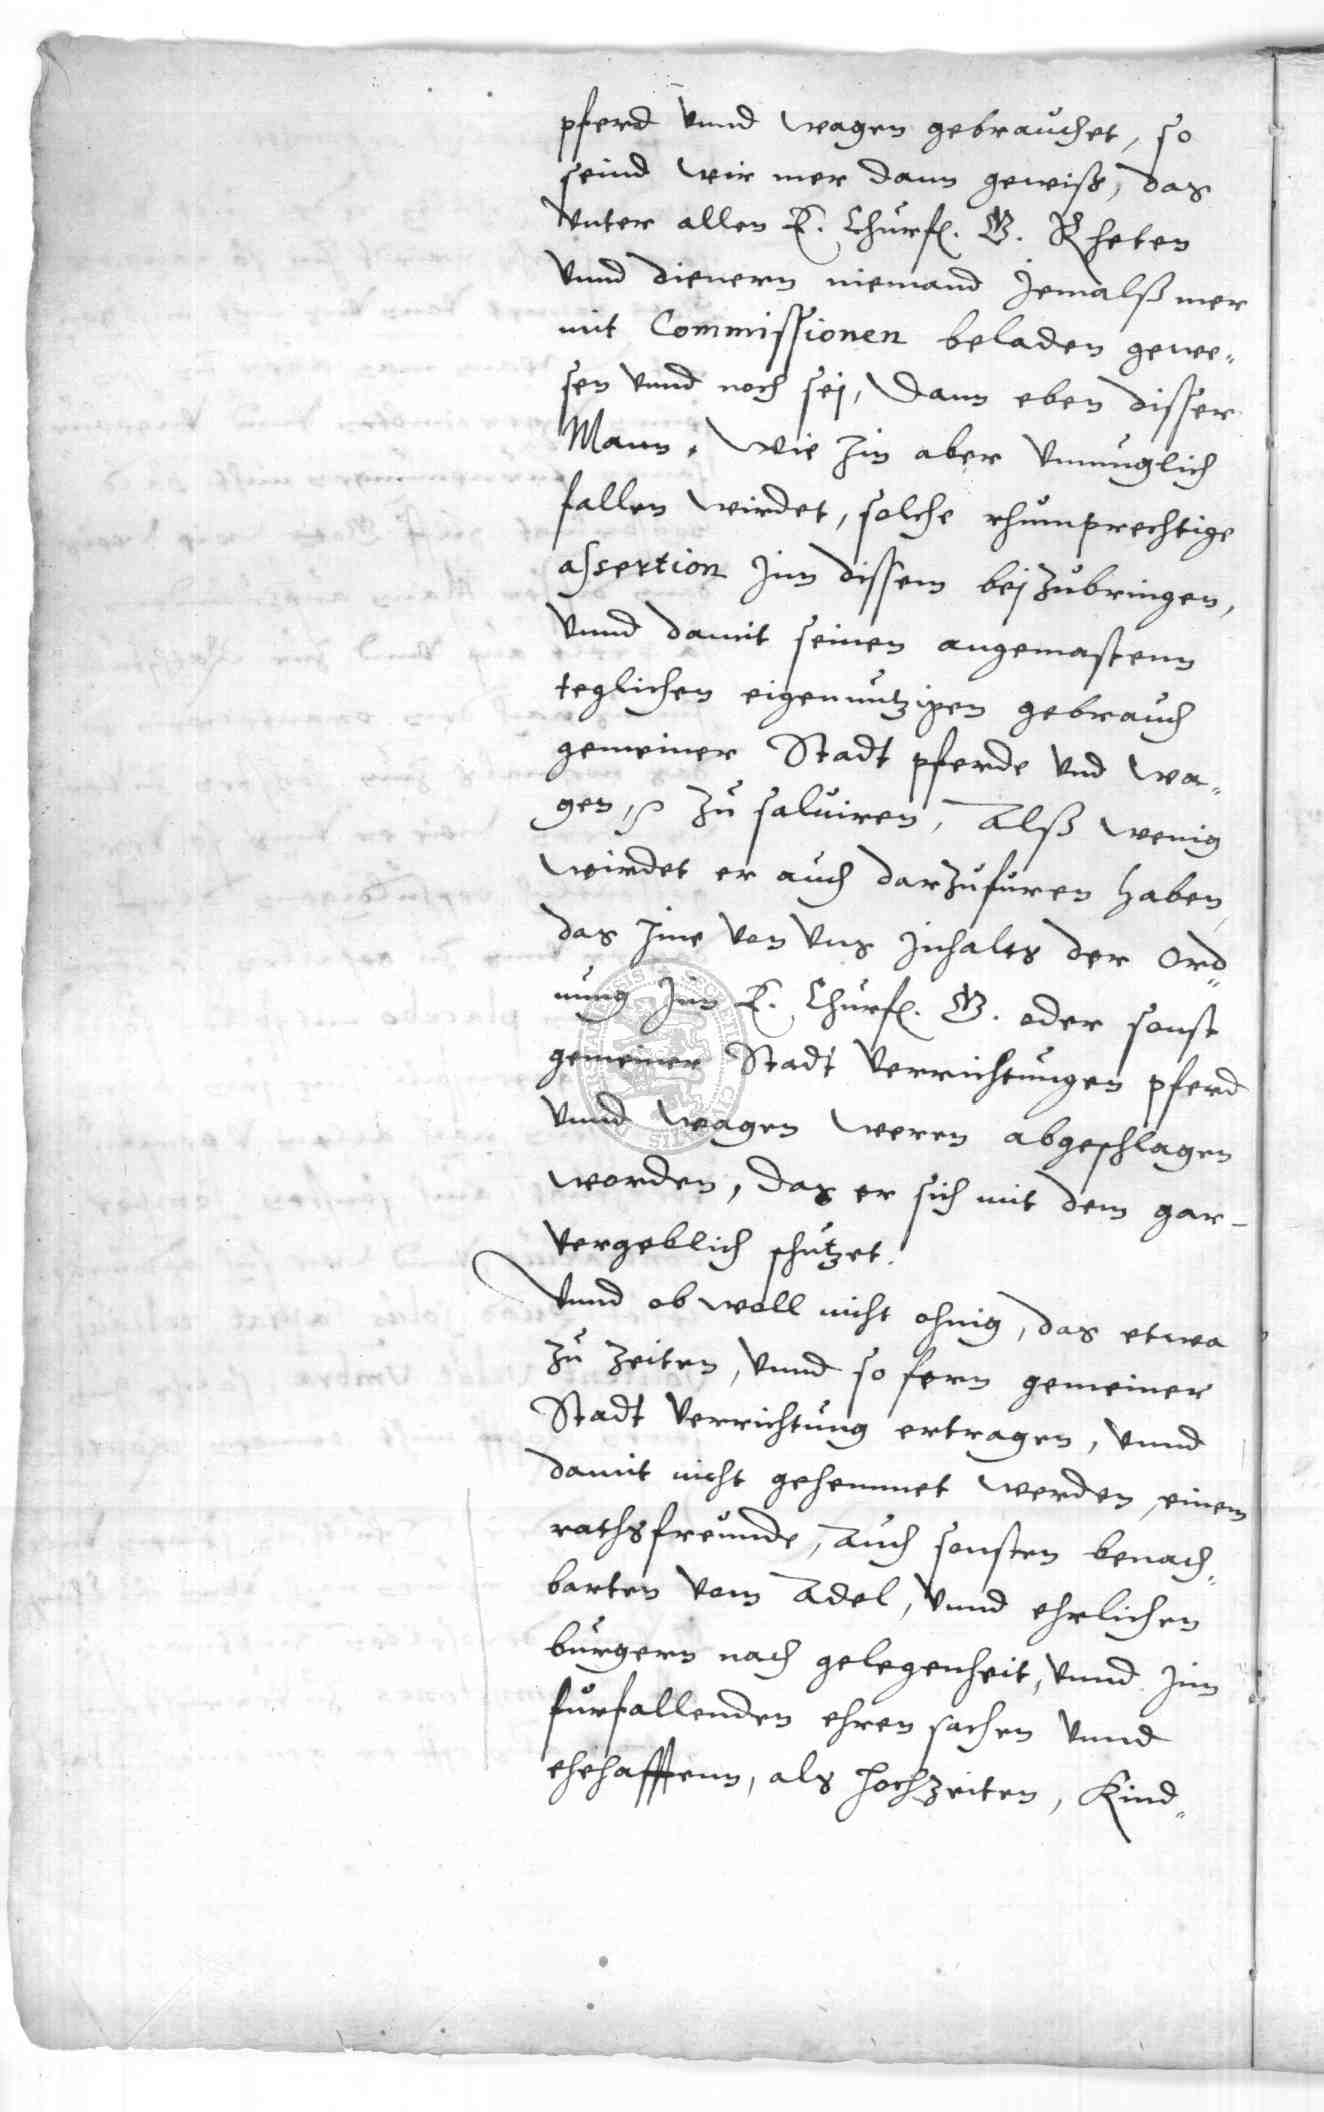 pferd vnnd wagen gebrauchet, so
seind wir mer dann gewiß, das
vnter allen E. Churf. G. Rheten
vnnd dienern niemand Jemalß mer
mit Commissionen beladen gewe„
sen vnnd noch sej, dann eben disser
Mann. Wie Jm aber vnmuglich
fallen wirdet, solche rhumprechtige
assertion Jnn dissem bej zubringen,
vnnd damit seinen angemastenn
teglichen eigennutzigen gebrauch
gemeiner Stadt pferde vnd wa„
gen, zu saluiren, Alß wenig
wirdet er auch darzufuren haben,
das Jme von vns Jnhalts der Ord„
nung Jnn E. Churf. G. oder sonst
gemeiner Stadt verrichtungen pferd
vnnd wagen weren abgeschlagen
worden, das er sich mit dem gar-
vergeblich schutzet.
Vnnd ob woll nicht ohnig, das etwa
zu zeiten, vnnd so fern gemeiner
Stadt verrichtung ertragen, vnnd
damit nicht gehemmet werden, einem
rathsfreunde, Auch sonsten benach„
barten vom Adel, vnnd ehrlichen
burgern nach gelegenheit, vnnd Jnn
furfallenden ehren sachen vnnd
ehehafftenn, als hochzeiten, Kind„